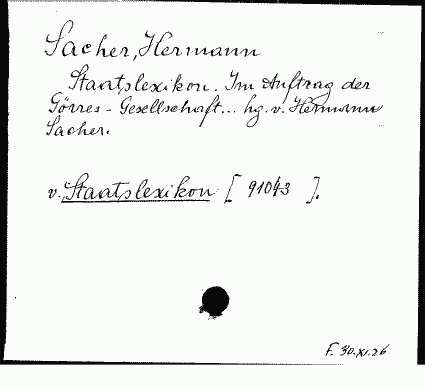 Sacher, Hermann
Staatslexikon. Im Auftrag der
Görres-Gesellschaft... hg. v. Hermann
Sacher.
v. Staatslexikon [ 91043 ].
F. 30.XI.26.